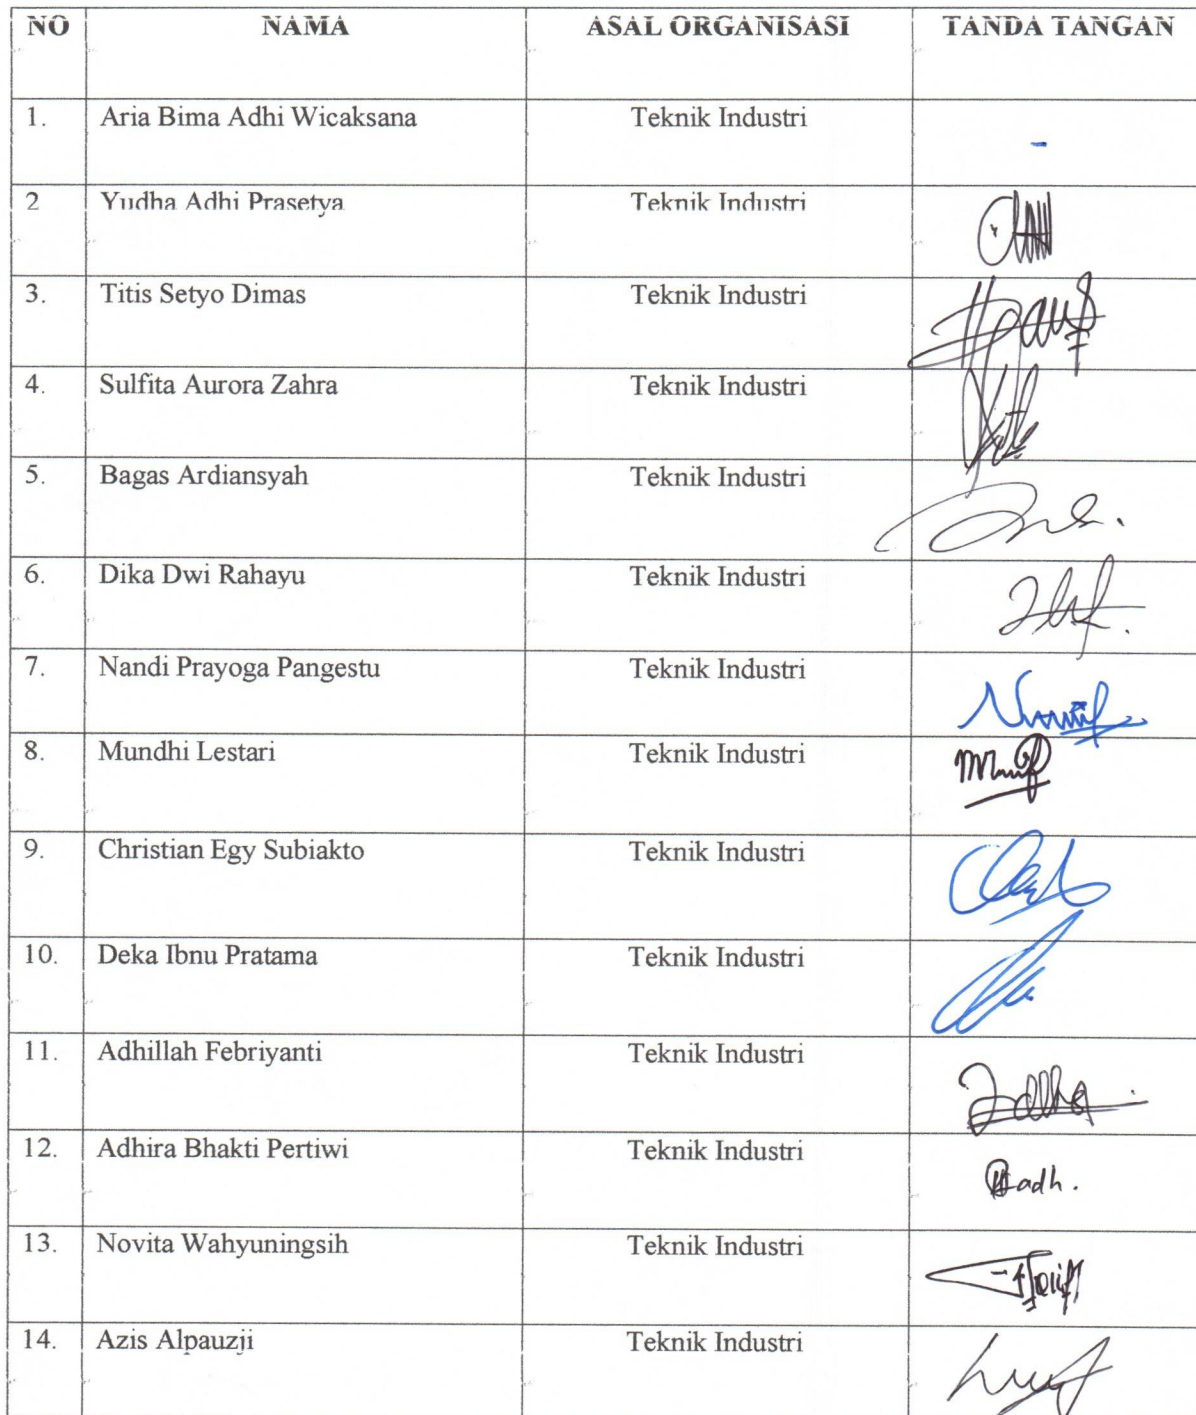 NO NAMA ASAL ORGANISASI TANDA TANGAN
1. Aria Bima Adhi Wicaksana Teknik Industri -
2 Yudha Adhi Prasetya Teknik Industri
3. Titis Setyo Dimas Teknik Industri
4. Sulfita Aurora Zahra Teknik Industri
5. Bagas Ardiansyah Teknik Industri
6. Dika Dwi Rahayu Teknik Industri
7. Nandi Prayoga Pangestu Teknik Industri
8. Mundhi Lestari Teknik Industri
9. Christian Egy Subiakto Teknik Industri
10. Deka Ibnu Pratama Teknik Industri
11. Adhillah Febriyanti Teknik Industri
12. Adhira Bhakti Pertiwi Teknik Industri
13. Novita Wahyuningsih Teknik Industri
14. Azis Alpauzji Teknik Industri